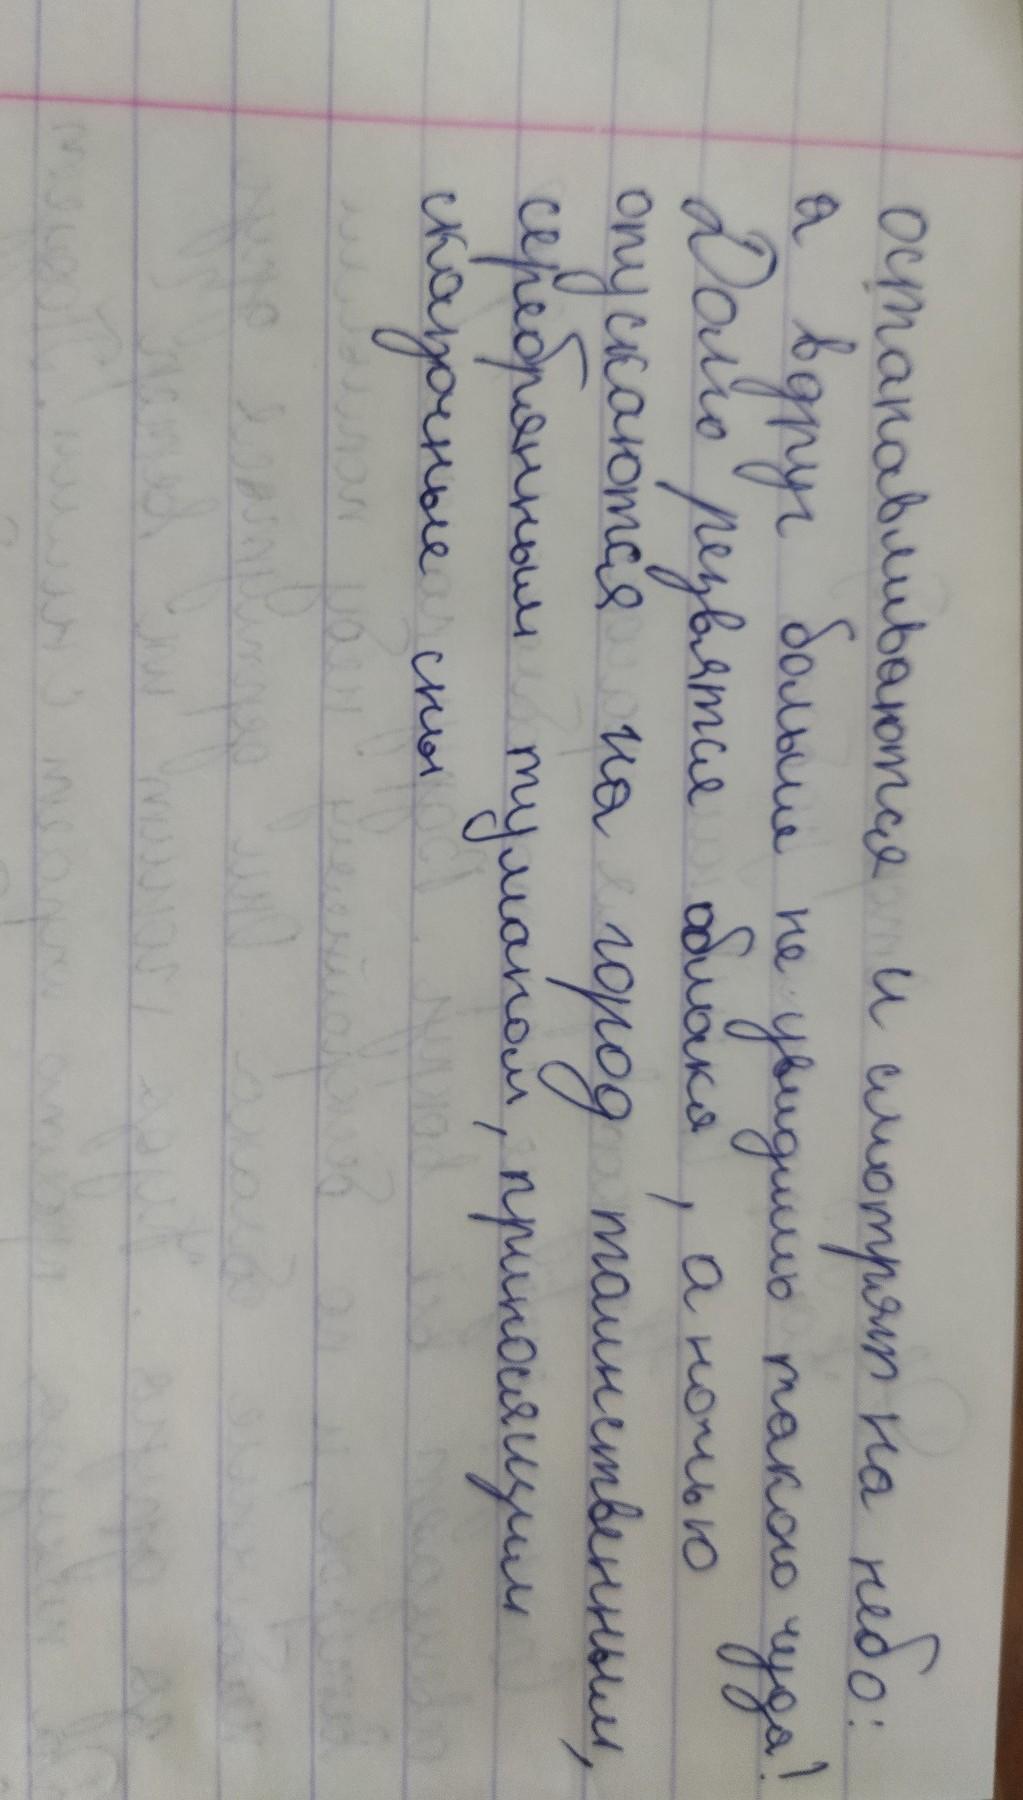 останавливаются и смотрят на небо:
а вдруг больше не увидишь такого чуда!
Долго резвятся облака, а ночью
опускаются на город таинственным,
серебряным туманом, приносящим
сказочные сны